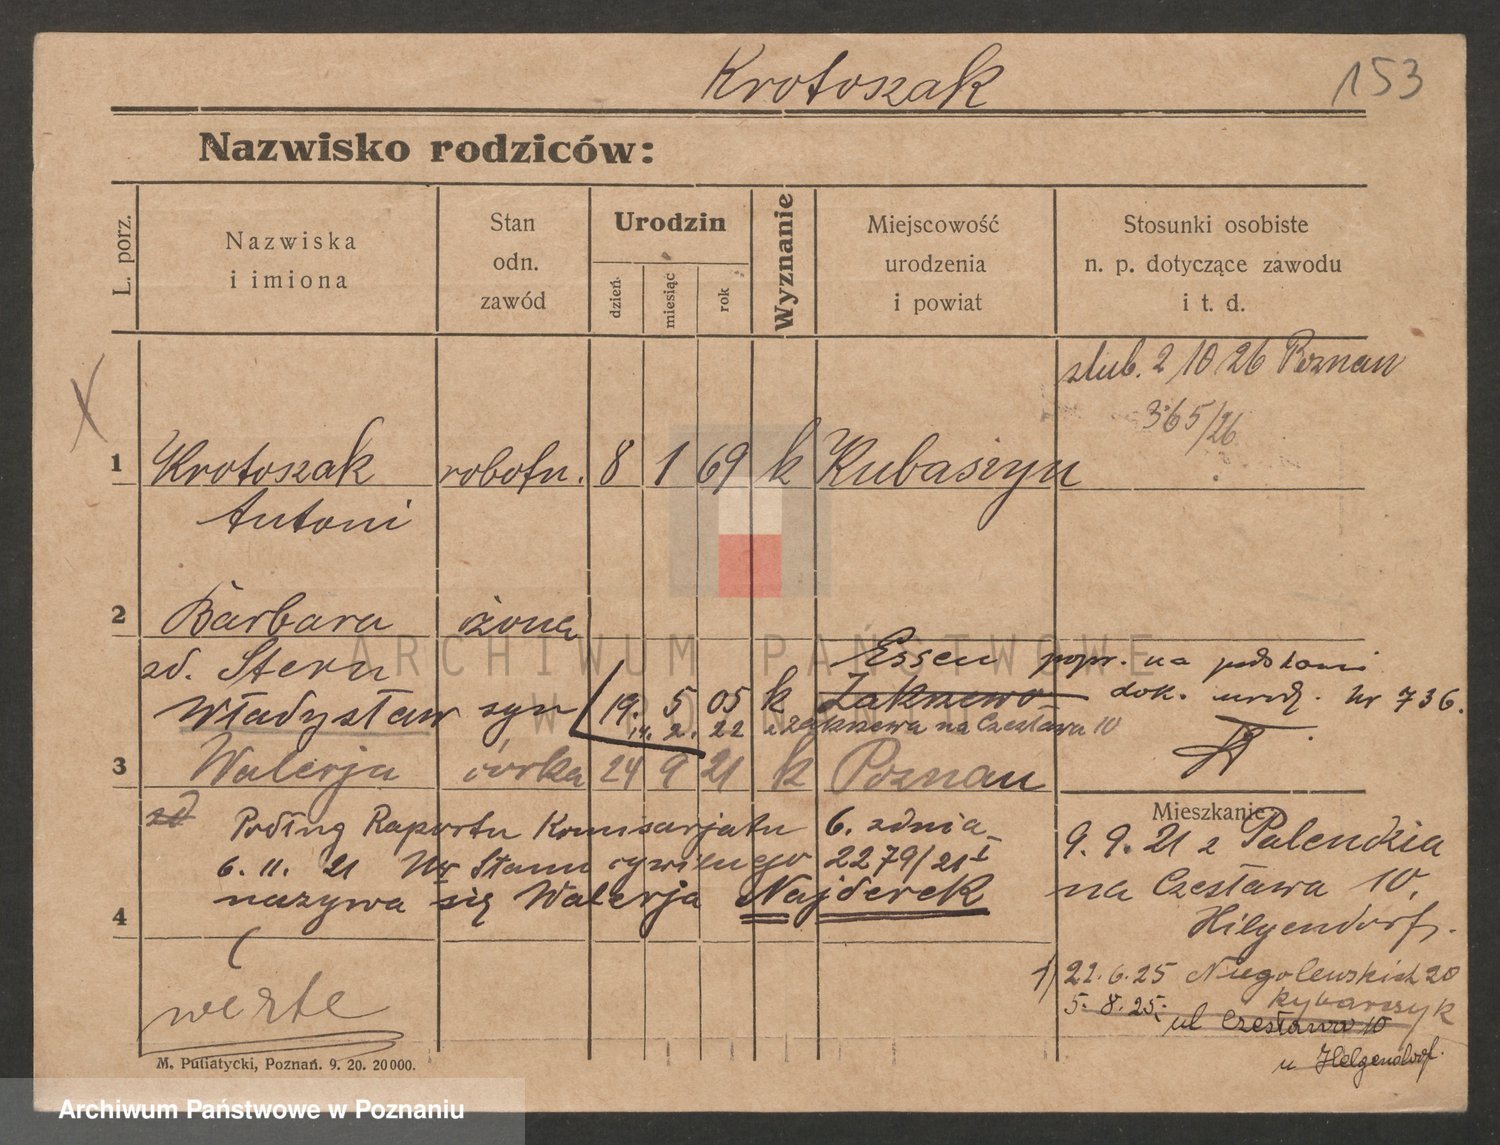 Krotoszak
153
Nazwisko rodziców:
L. porz.
Nazwiska
i imiona
Stan
odn.
zawód
Urodzin
dzień
miesiąc
rok
Wyznanie
Miejscowość
urodzenia
i powiat
Stosunki osobiste
n. p. dotyczące zawodu
i t. d.
ślub. 2/10 26 Poznan
365/26
1 Krotoszak robotn. 8 1 69 k Kubaszyn
Antoni
2 Barbara żona
zd. Stern Essen popr. na podstawie
Władysław syn 19. 5 05 k Zakrzewo dok. urodz. nr 736.
14. 2. 22 z Zakrzewa na Czesława 10
3 Walerja córka 24 9 21 k Poznan
Podług Raportu Komisarjatu 6. zdnia
6. 11. 21 Nr Stanu cywilnego 2279/21 I
nazywa się Walerja Najderek
4
Mieszkanie:
9. 9. 21 z Palendzia
na Czesława 10,
Hilgendorf.
1) 22. 6. 25 Niegolewskich 20
Rybarczyk
5. 8. 25. ul Czesława 10
u Helgendorf.
werte
M. Putiatycki, Poznań. 9. 20. 20000.
ARCHIWUM PAŃSTWOWE
W POZNANIU
Archiwum Państwowe w Poznaniu